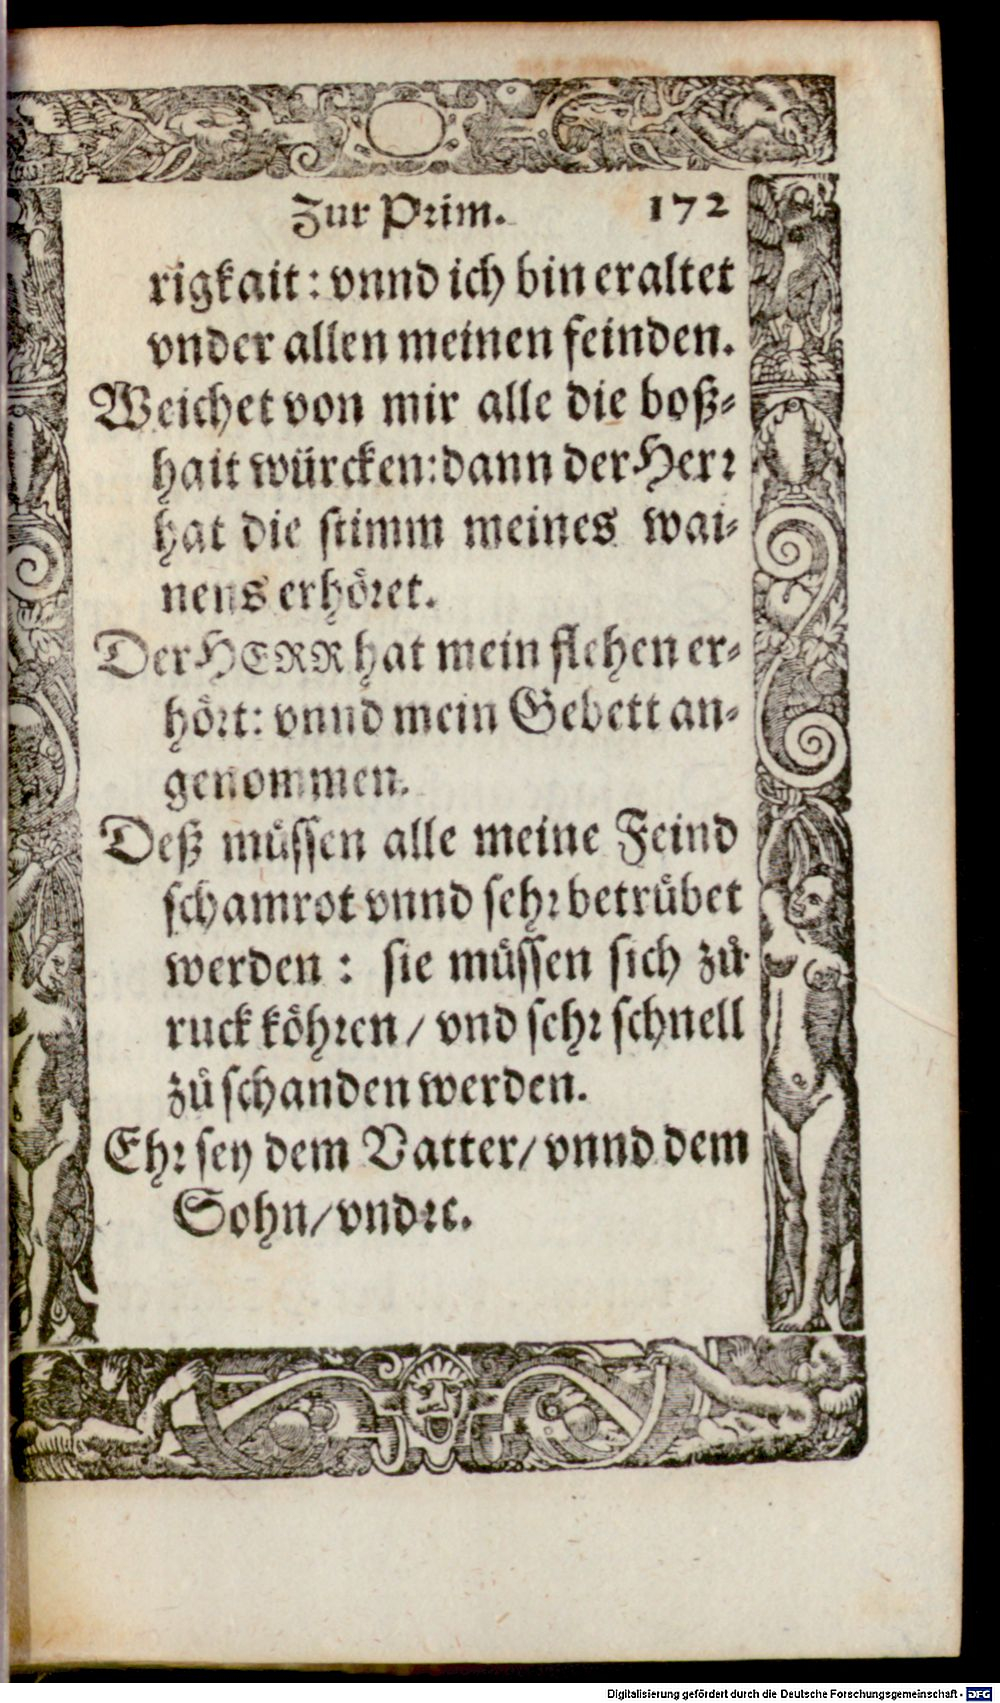 Zur Prim. 172
rigkait: vnnd ich bin eraltet
vnder allen meinen feinden.
Weichet von mir alle die boß-
hait würcken: dann der Herr
hat die stimm meines wai-
nens erhöret.
Der HERR hat mein flehen er-
hört: vnnd mein Gebett an-
genommen.
Deß müssen alle meine Feind
schamrot vnnd sehr betrübet
werden : sie müssen sich zů
ruck köhren / vnd sehr schnell
zů schanden werden.
Ehr sey dem Vatter / vnnd dem
Sohn / vnd ꝛc.
Digitalisierung gefördert durch die Deutsche Forschungsgemeinschaft - DFG